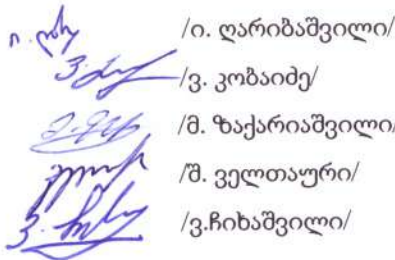 /ი. ღარიბაშვილი/
/ვ. კობაიძე/
/მ. ზაქარიაშვილი/
/შ. ველთაური/
/ვ.ჩიხაშვილი/